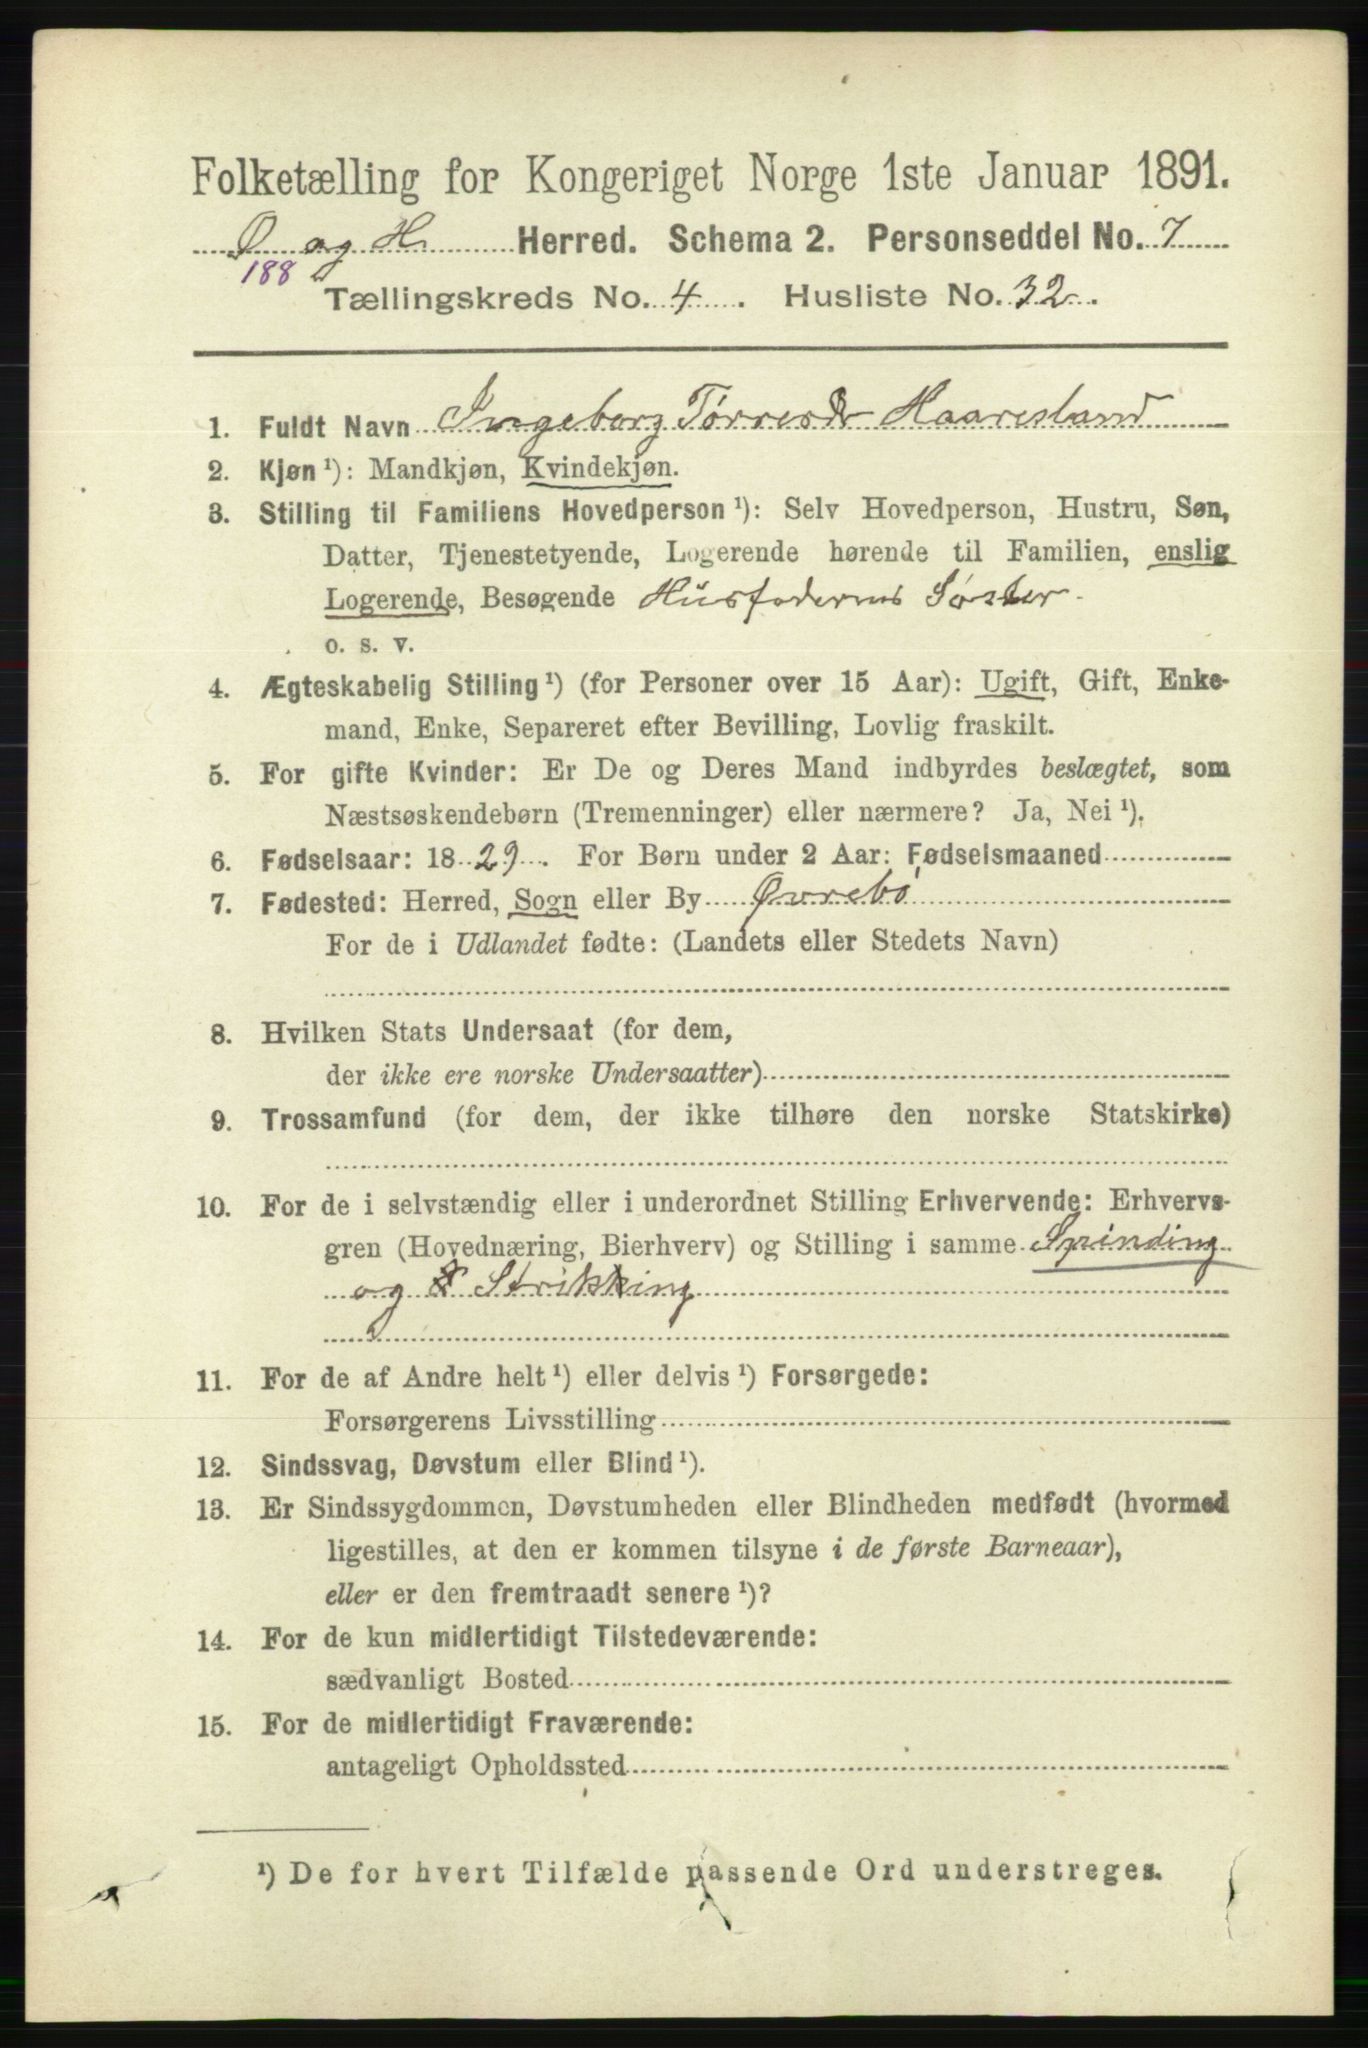 Folketælling for Kongeriget Norge 1ste Januar 1891.
Ø og H Herred. Schema 2. Personseddel No. 7
188
Tællingskreds No. 4. Husliste No. 32.
1. Fuldt Navn Ingeborg Tørresdr Haaresland
2. Kjøn ¹): Mandkjøn, Kvindekjøn.
3. Stilling til Familiens Hovedperson ¹): Selv Hovedperson, Hustru, Søn,
Datter, Tjenestetyende, Logerende hørende til Familien, enslig
Logerende, Besøgende Husfaderens Søster
o. s. v.
4. Ægteskabelig Stilling ¹) (for Personer over 15 Aar): Ugift, Gift, Enke-
mand, Enke, Separeret efter Bevilling, Lovlig fraskilt.
5. For gifte Kvinder: Er De og Deres Mand indbyrdes beslægtet, som
Næstsøskendebørn (Tremenninger) eller nærmere? Ja, Nei ¹).
6. Fødselsaar: 1829. For Børn under 2 Aar: Fødselsmaaned
7. Fødested: Herred, Sogn eller By Øvrebø
For de i Udlandet fødte: (Landets eller Stedets Navn)
8. Hvilken Stats Undersaat (for dem,
der ikke ere norske Undersaatter)
9. Trossamfund (for dem, der ikke tilhøre den norske Statskirke)
10. For de i selvstændig eller i underordnet Stilling Erhvervende: Erhvervs-
gren (Hovednæring, Bierhverv) og Stilling i samme Spinding
og Strikking
11. For de af Andre helt ¹) eller delvis ¹) Forsørgede:
Forsørgerens Livsstilling
12. Sindssvag, Døvstum eller Blind ¹).
13. Er Sindssygdommen, Døvstumheden eller Blindheden medfødt (hvormed
ligestilles, at den er kommen tilsyne i de første Barneaar),
eller er den fremtraadt senere ¹)?
14. For de kun midlertidigt Tilstedeværende:
sædvanligt Bosted
15. For de midlertidigt Fraværende:
antageligt Opholdssted
¹) De for hvert Tilfælde passende Ord understreges.